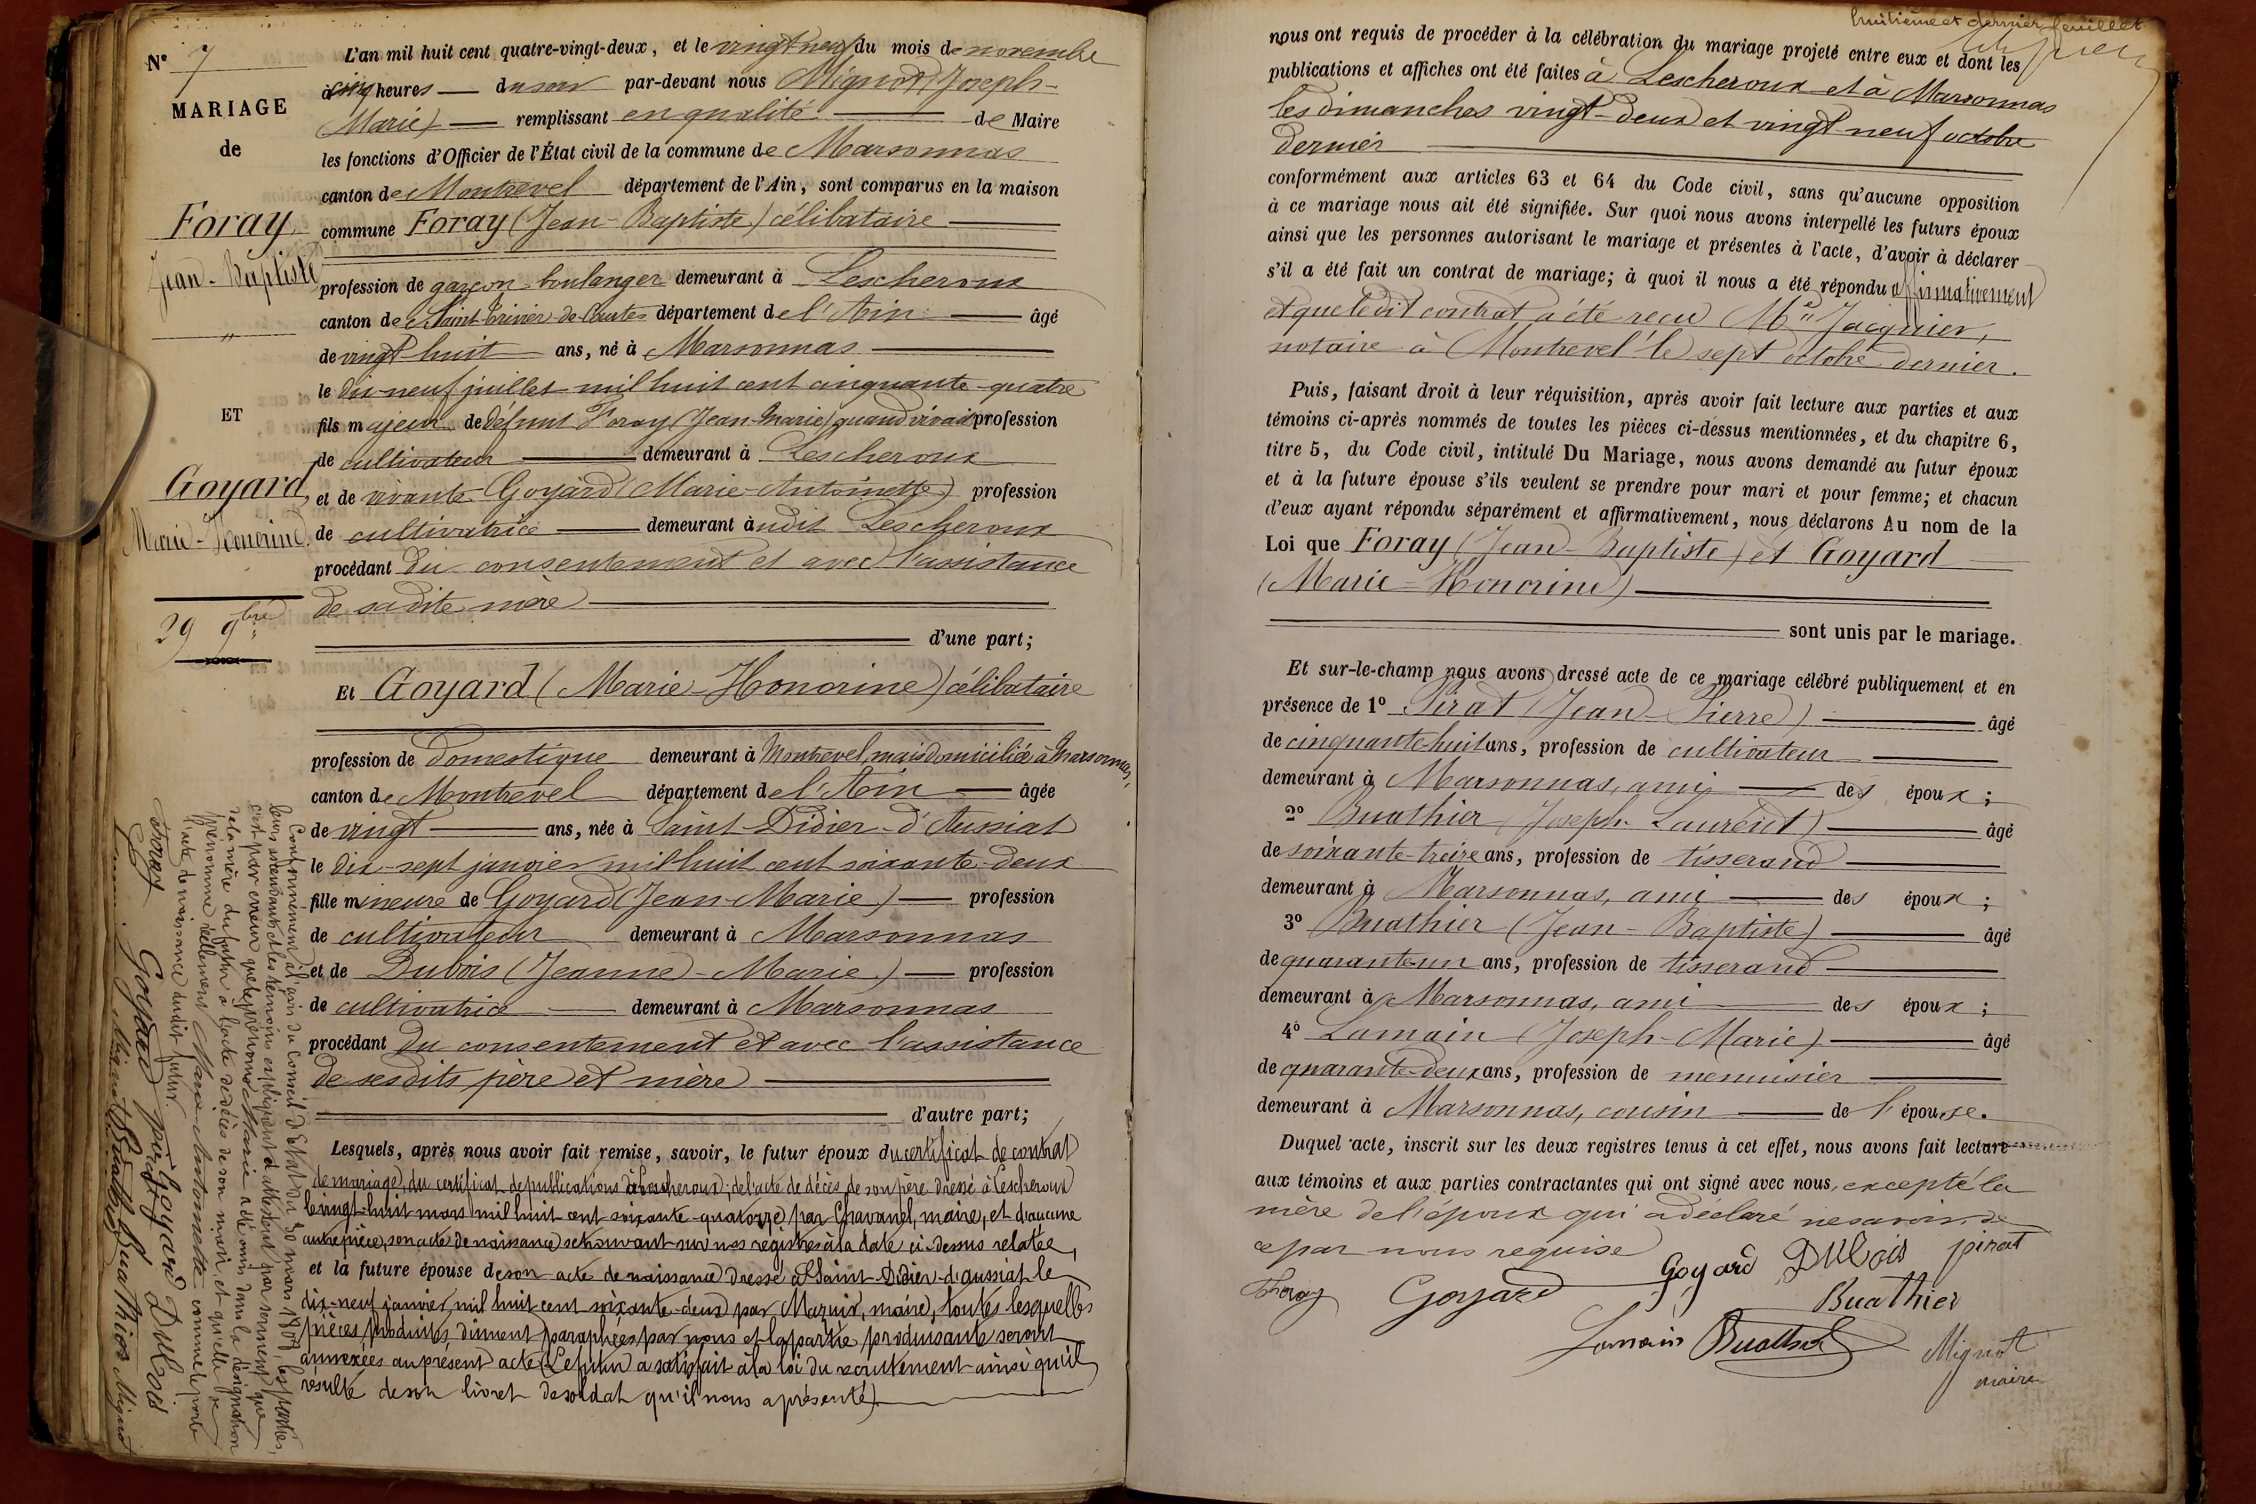 N° 7
MARIAGE
de
Foray
Jean-Baptiste
"
ET
Goyard,
Marie-Honorine.
29 9bre
L'an mil huit cent quatre-vingt-deux, et le vingt neuf du mois de novembre
à cinq heures — du soir par-devant nous Mignot (Joseph-
Marie) — remplissant en qualité — de Maire
les fonctions d'Officier de l'État civil de la commune de Marsonnas
canton de Montrevel département de l'Ain, sont comparus en la maison
commune Foray (Jean-Baptiste) célibataire —
profession de garçon-boulanger demeurant à Lescheroux
canton de Saint Trivier de Courtes département de l'Ain — âgé
de vingt huit — ans, né à Marsonnas —
le dix-neuf juillet mil huit cent cinquante-quatre
fils majeur de défunt Foray (Jean-Marie) quand vivait profession
de cultivateur — demeurant à Lescheroux
et de vivante Goyard (Marie-Antoinette) profession
de cultivatrice — demeurant audit Lescheroux
procédant du consentement et avec l'assistance
de sadite mère —
d'une part;
Et Goyard (Marie-Honorine) célibataire
profession de domestique demeurant à Montrevel, mais domiciliée à Marsonnas,
canton de Montrevel département de l'Ain — âgée
de vingt — ans, née à Saint-Didier-d'Aussiat
le dix-sept janvier mil huit cent soixante-deux
fille mineure de Goyard (Jean-Marie) — profession
de cultivateur demeurant à Marsonnas
et de Dubois (Jeanne-Marie) — profession
de cultivatrice — demeurant à Marsonnas
procédant du consentement et avec l'assistance
de sesdits père et mère —
d'autre part;
Lesquels, après nous avoir fait remise, savoir, le futur époux du certificat de contrat
de mariage, du certificat de publications à Lescheroux; de l'acte de décès de son père dressé à Lescheroux
le vingt-huit mars mil huit cent soixante-quatorze par Chavanel, maire, et d'aucune
autre pièce, son acte de naissance se trouvant sur nos registres à la date ci-dessus relatée,
et la future épouse de son acte de naissance dressé à Saint-Didier-d'aussiat le
dix-neuf janvier mil huit cent soixante-deux par Mazuir, maire, toutes lesquelles
pièces produites, dûment paraphées par nous et la partie produisante seront
annexées au présent acte (Le futur a satisfait à la loi du recrutement ainsi qu'il
résulte de son livret de soldat qu'il nous a présenté). —
Conformément à l'avis du Conseil d'Etat du 30 mars 1808, les parties,
leurs ascendants et les témoins expliquent et attestent par serment que
c'est par erreur que le prénom de Marie a été omis dans la désignation
de la mère du futur à l'acte de décès de son mari et qu'elle se
prénomme réellement Marie-Antoinette comme le porte
l'acte de naissance dudit futur.
Foray Goyard Goyard Dubois
pirat
Lomain Mignot Buathier Buathier Mignot
huitième et dernier feuillet
nous ont requis de procéder à la célébration du mariage projeté entre eux et dont les
publications et affiches ont été faites à Lescheroux et à Marsonnas
les dimanches vingt-deux et vingt-neuf octobre
dernier —
conformément aux articles 63 et 64 du Code civil, sans qu'aucune opposition
à ce mariage nous ait été signifiée. Sur quoi nous avons interpellé les futurs époux
ainsi que les personnes autorisant le mariage et présentes à l'acte, d'avoir à déclarer
s'il a été fait un contrat de mariage; à quoi il nous a été répondu affirmativement
et que le dit contrat a été reçu Me Jacquier,
notaire à Montrevel le sept octobre dernier.
Puis, faisant droit à leur réquisition, après avoir fait lecture aux parties et aux
témoins ci-après nommés de toutes les pièces ci-dessus mentionnées, et du chapitre 6,
titre 5, du Code civil, intitulé Du Mariage, nous avons demandé au futur époux
et à la future épouse s'ils veulent se prendre pour mari et pour femme; et chacun
d'eux ayant répondu séparément et affirmativement, nous déclarons Au nom de la
Loi que Foray (Jean-Baptiste) et Goyard
(Marie-Honorine) —
sont unis par le mariage.
Et sur-le-champ nous avons dressé acte de ce mariage célébré publiquement et en
présence de 1° Pirat (Jean-Pierre) — âgé
de cinquante-huit ans, profession de cultivateur —
demeurant à Marsonnas, ami — des époux;
2° Buathier (Joseph-Laurent) — âgé
de soixante-treize ans, profession de tisserand —
demeurant à Marsonnas, ami — des époux;
3° Buathier (Jean-Baptiste) — âgé
de quarante-un ans, profession de tisserand —
demeurant à Marsonnas, ami — des époux;
4° Lomain (Joseph-Marie) — âgé
de quarante-deux ans, profession de menuisier —
demeurant à Marsonnas, cousin — de l'épouse.
Duquel acte, inscrit sur les deux registres tenus à cet effet, nous avons fait lecture
aux témoins et aux parties contractantes qui ont signé avec nous, excepté la
mère de l'époux qui a déclaré ne savoir, de
ce par nous requise
Foray Goyard Goyard DUbois pirat
Buathier
Lomain Buathier Mignot
maire